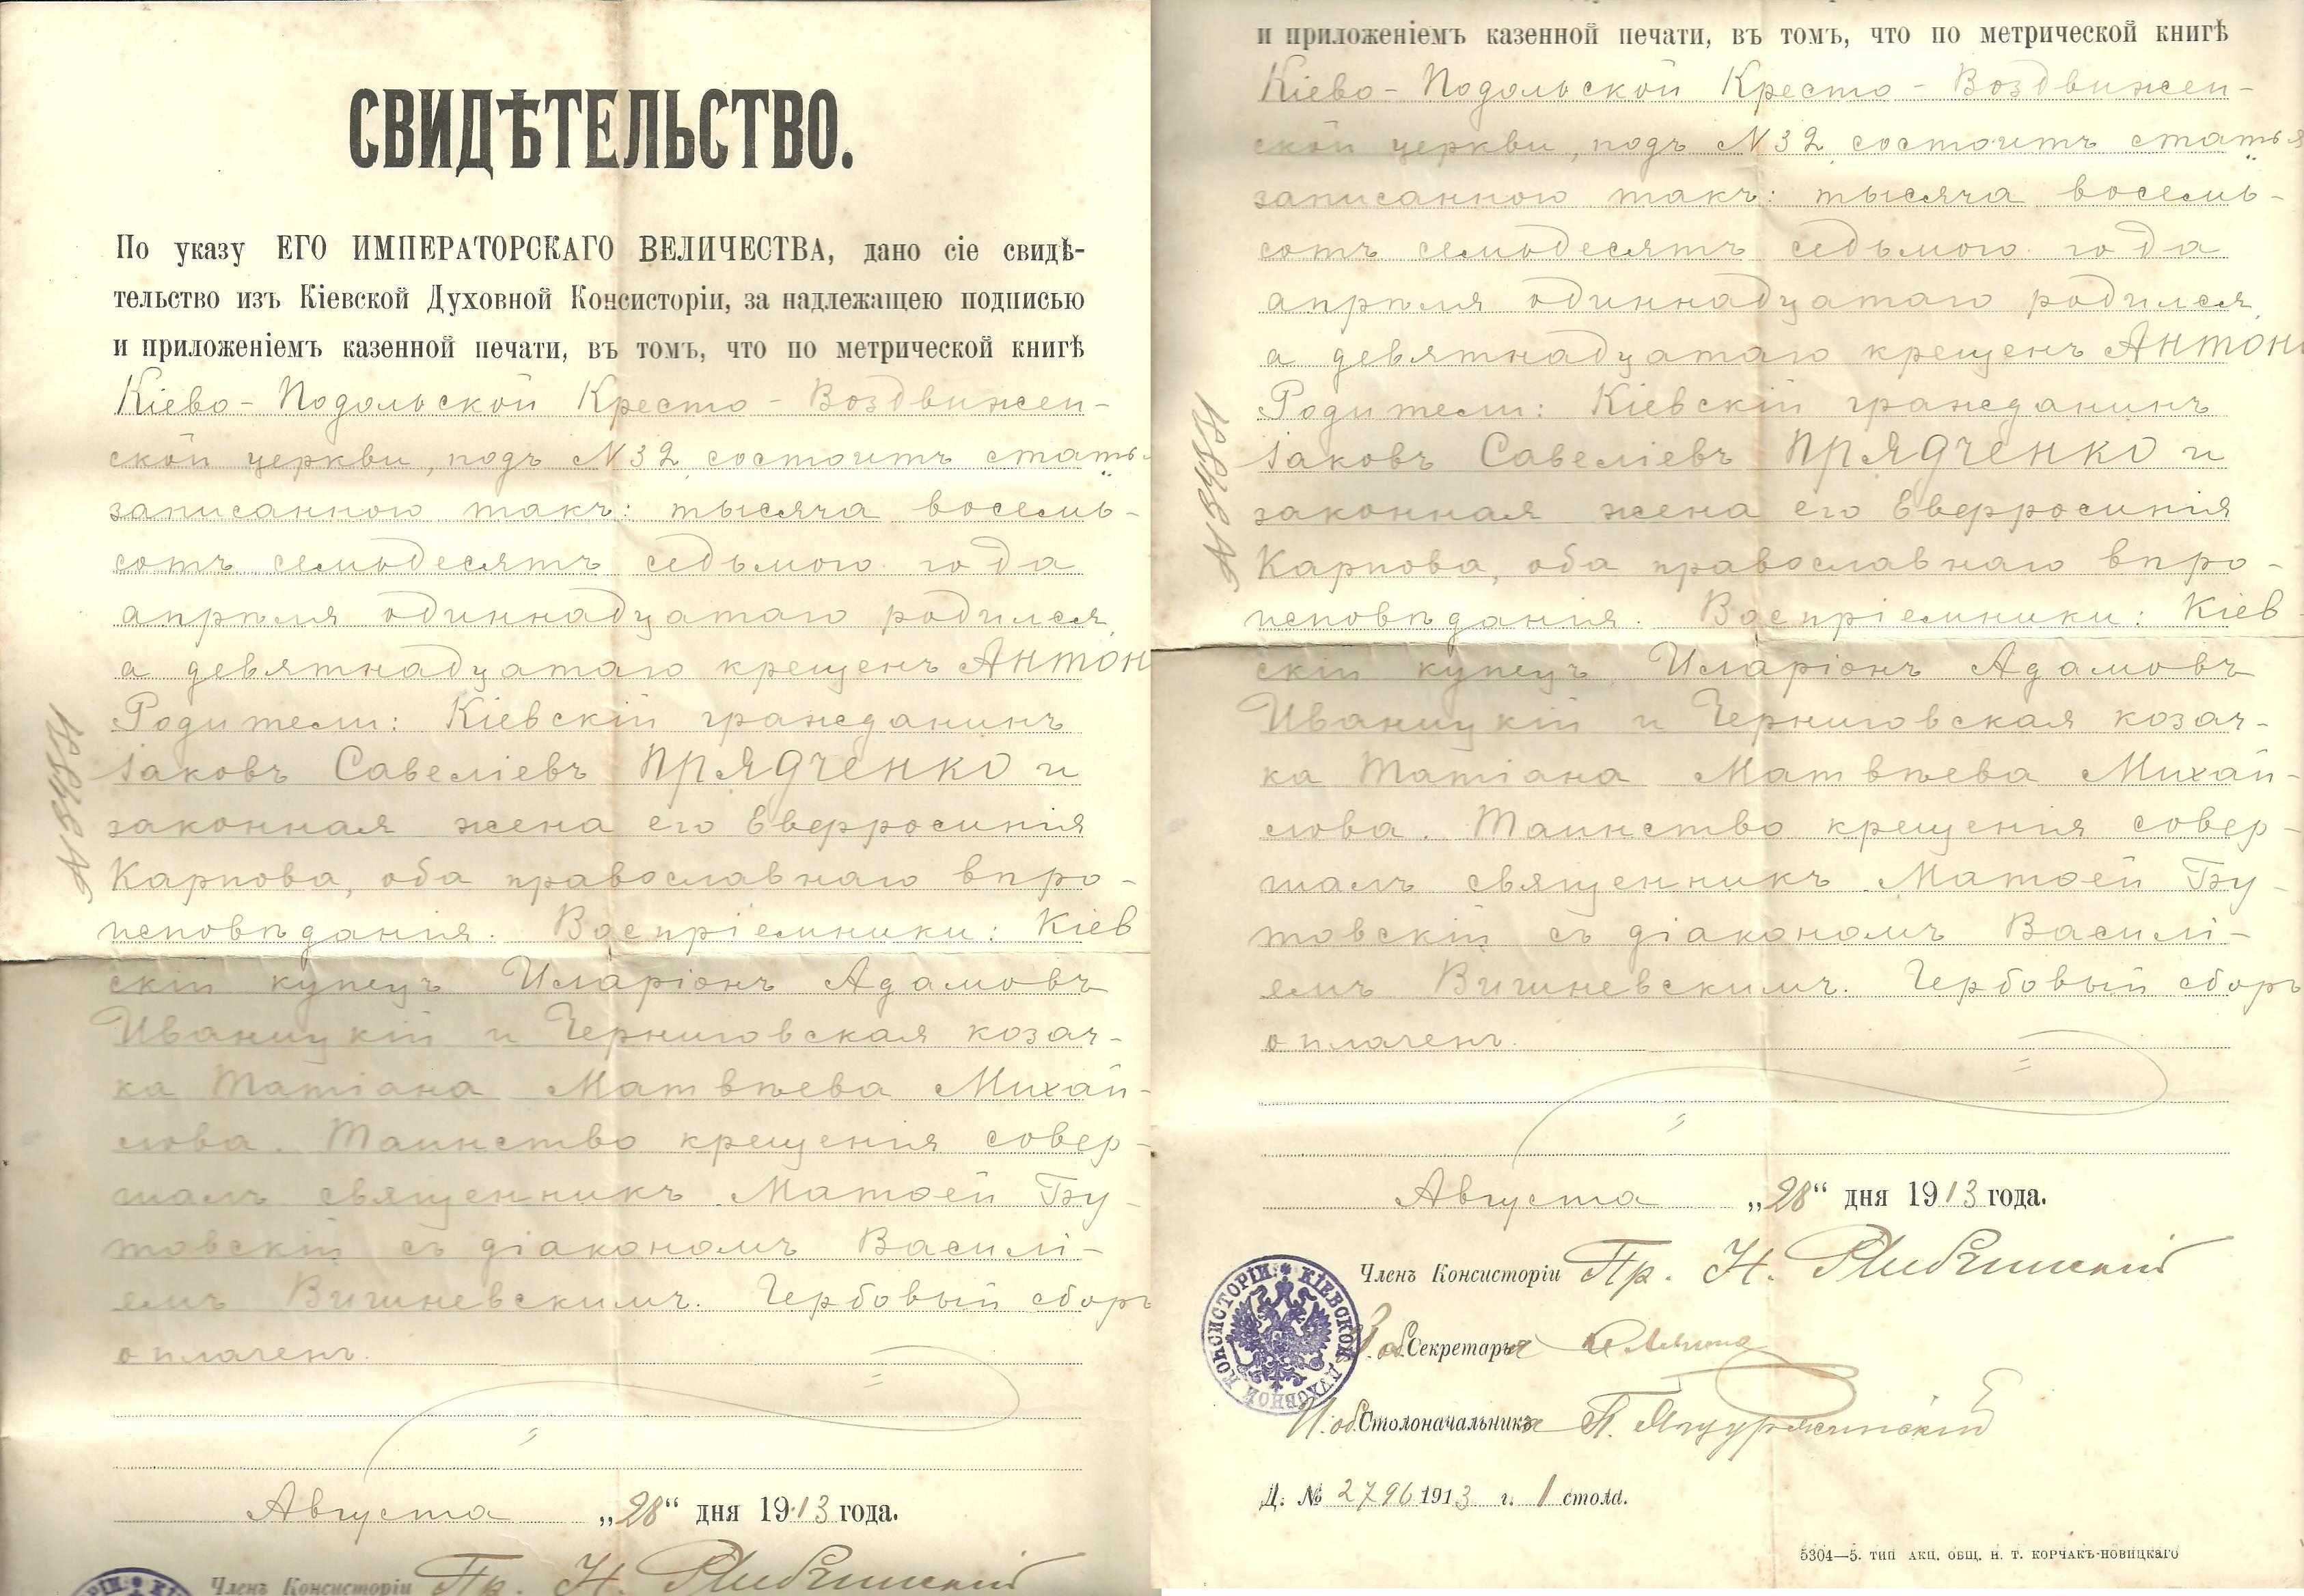 СВИДѢТЕЛЬСТВО.
По указу ЕГО ИМПЕРАТОРСКАГО ВЕЛИЧЕСТВА, дано сіе свидѣ-
тельство изъ Кіевской Духовной Консисторіи, за надлежащею подписью
и приложеніемъ казенной печати, въ томъ, что по метрической книгѣ
Кіево-Подольской Кресто-Воздвижен-
ской церкви, подъ №32 состоитъ стать
записанною такъ: тысяча восемь-
сотъ семьдесятъ седьмого года
апрѣля одиннадцатаго родился,
а девятнадцатаго крещенъ Антон
Родители: Кіевскій гражданинъ
Іаковъ Савеліевъ Прядченко и
законная жена его Евфросинія
Карпова, оба православнаго впро-
исповѣданія. Воспріемники: Кіев
скій купецъ Иларіонъ Адамовъ
Иваницкій и Черниговская козач-
ка Татіана Матвѣева Михай-
лова. Таинство крещенія совер-
шалъ священникъ Матѳей Бу-
товскій съ діакономъ Василі-
емъ Вишневскимъ. Гербовый сборъ
оплаченъ.
Августа „28“ дня 1913 года.
Членъ Консисторіи Пр. Н.
и приложеніемъ казенной печати, въ томъ, что по метрической книгѣ
Кіево-Подольской Кресто-Воздвижен-
ской церкви, подъ №32 состоитъ статья
записанною такъ: тысяча восемь-
сотъ семьдесятъ седьмого года
апрѣля одиннадцатаго родился,
а девятнадцатаго крещенъ Антон
Родители: Кіевскій гражданинъ
Іаковъ Савеліевъ Прядченко и
законная жена его Евфросинія
Карпова, оба православнаго впро-
исповѣданія. Воспріемники: Кіев
скій купецъ Иларіонъ Адамовъ
Иваницкій и Черниговская козач-
ка Татіана Матвѣева Михай-
лова. Таинство крещенія совер-
шалъ священникъ Матѳей Бу-
товскій съ діакономъ Василі-
емъ Вишневскимъ. Гербовый сборъ
оплаченъ.
Августа „28“ дня 1913 года.
Членъ Консисторіи Пр. Н.
КІЕВСКОЙ ДУХОВНОЙ КОНСИСТОРІИ
И. об. Секретаря
И. об. Столоначальника П.
Д. № 2796 1913 г. 1 стола.
5304—5. тип акц. общ. н. т. корчакъ-новицкаго